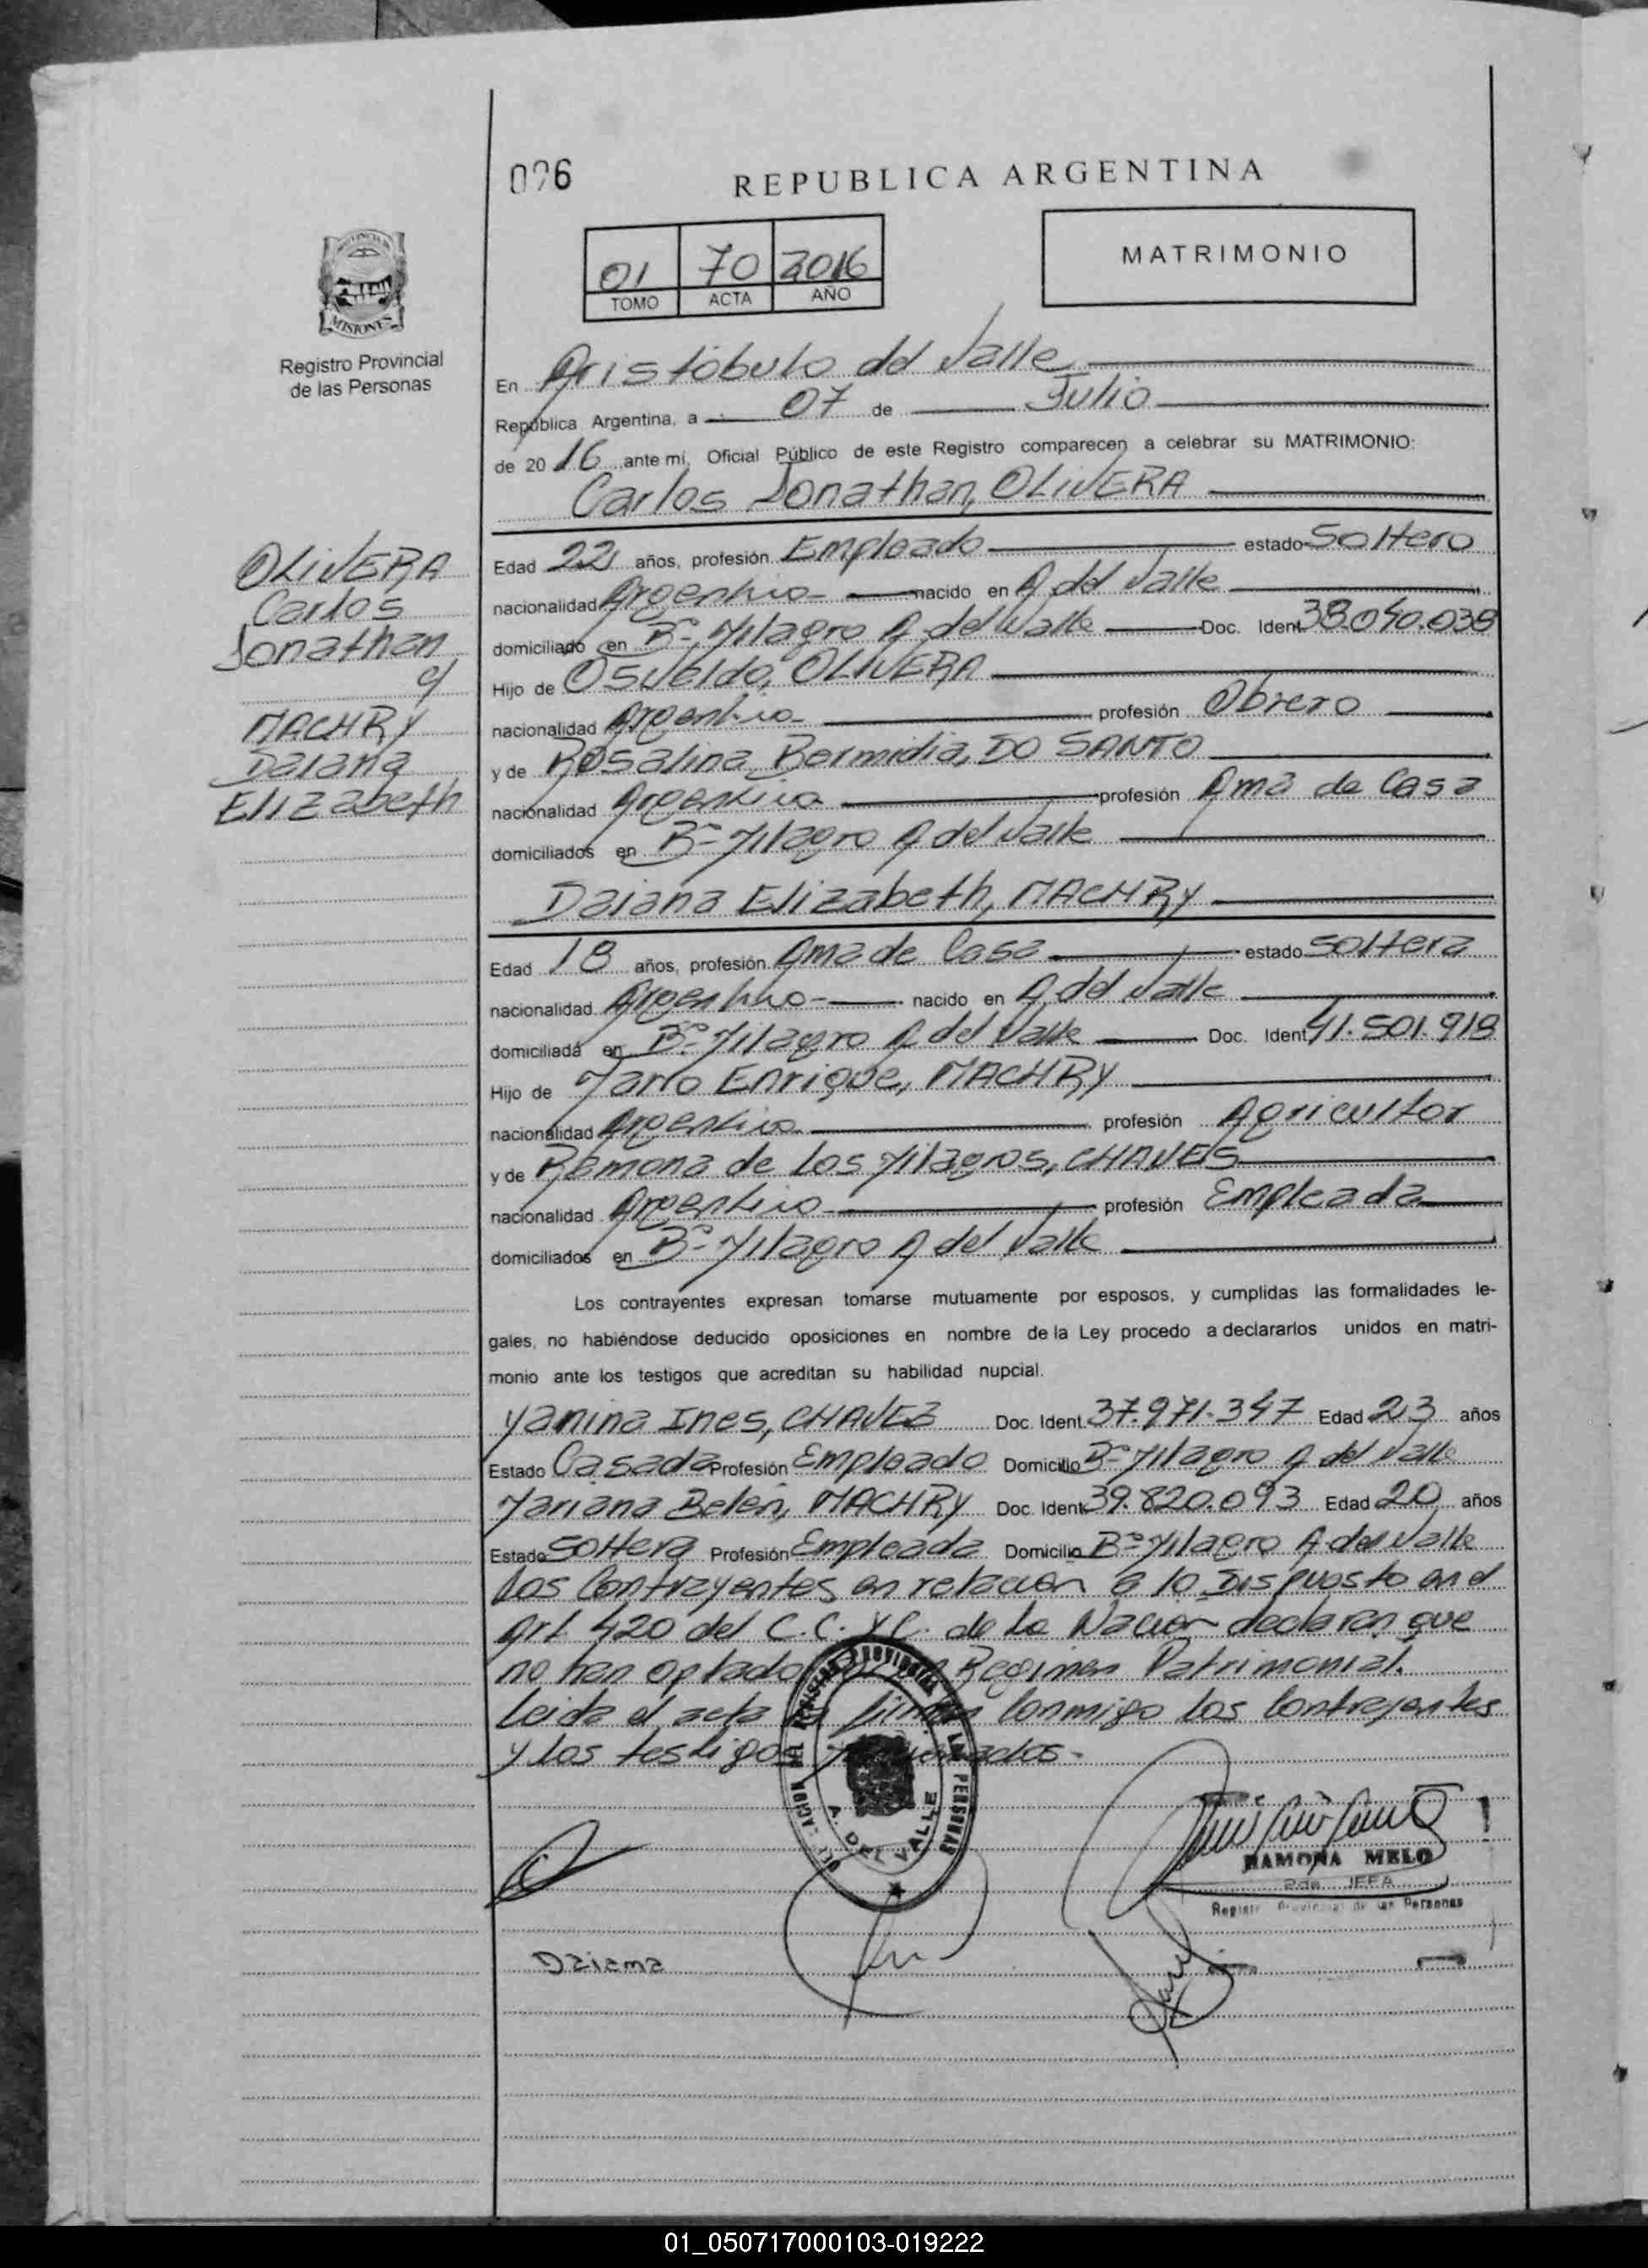 096
REPUBLICA ARGENTINA
01 70 2016
TOMO ACTA AÑO
MATRIMONIO
PROVINCIA DE
MISIONES
Registro Provincial
de las Personas
En Aristóbulo del Valle
República Argentina, a 07 de Julio
de 2016 ante mí, Oficial Público de este Registro comparecen a celebrar su MATRIMONIO:
Carlos Jonathan, OLIVERA
OLIVERA
Carlos
Jonathan
c/
MACHRY
Daiana
Elizabeth
Edad 22 años, profesión Empleado estado Soltero
nacionalidad Argentino nacido en A del Valle
domiciliado en B° Milagro A del Valle Doc. Ident. 38.040.038
Hijo de Osvaldo, OLIVERA
nacionalidad Argentino profesión Obrero
y de Rosalina Bermidia, DO SANTO
nacionalidad Argentina profesión Ama de Casa
domiciliados en B° Milagro A del Valle
Daiana Elizabeth, MACHRY
Edad 18 años, profesión Ama de Casa estado Soltera
nacionalidad Argentino nacido en A del Valle
domiciliada en B° Milagro A del Valle Doc. Ident. 41.501.918
Hijo de Mario Enrique, MACHRY
nacionalidad Argentino profesión Agricultor
y de Ramona de los Milagros, CHAVES
nacionalidad Argentino profesión Empleada
domiciliados en B° Milagro A del Valle
Los contrayentes expresan tomarse mutuamente por esposos, y cumplidas las formalidades le-
gales, no habiéndose deducido oposiciones en nombre de la Ley procedo a declararlos unidos en matri-
monio ante los testigos que acreditan su habilidad nupcial.
Yanina Ines, CHAVEZ Doc. Ident. 37.971.347 Edad 23 años
Estado Casada Profesión Empleado Domicilio B° Milagro A del Valle
Mariana Belén, MACHRY Doc. Ident. 39.820.093 Edad 20 años
Estado Soltera Profesión Empleada Domicilio B° Milagro A del Valle
Los Contrayentes en relación a lo Dispuesto en el
art 420 del C.C. y C. de la Nación declaran que
no han optado Regimen Patrimonial.
Leida el acta firman Conmigo los Contrayentes
y los testigos
A. DEL VALLE
RAMONA MELO
2da JEFA
Registro Provincial de las Personas
Daiana
01_050717000103-019222